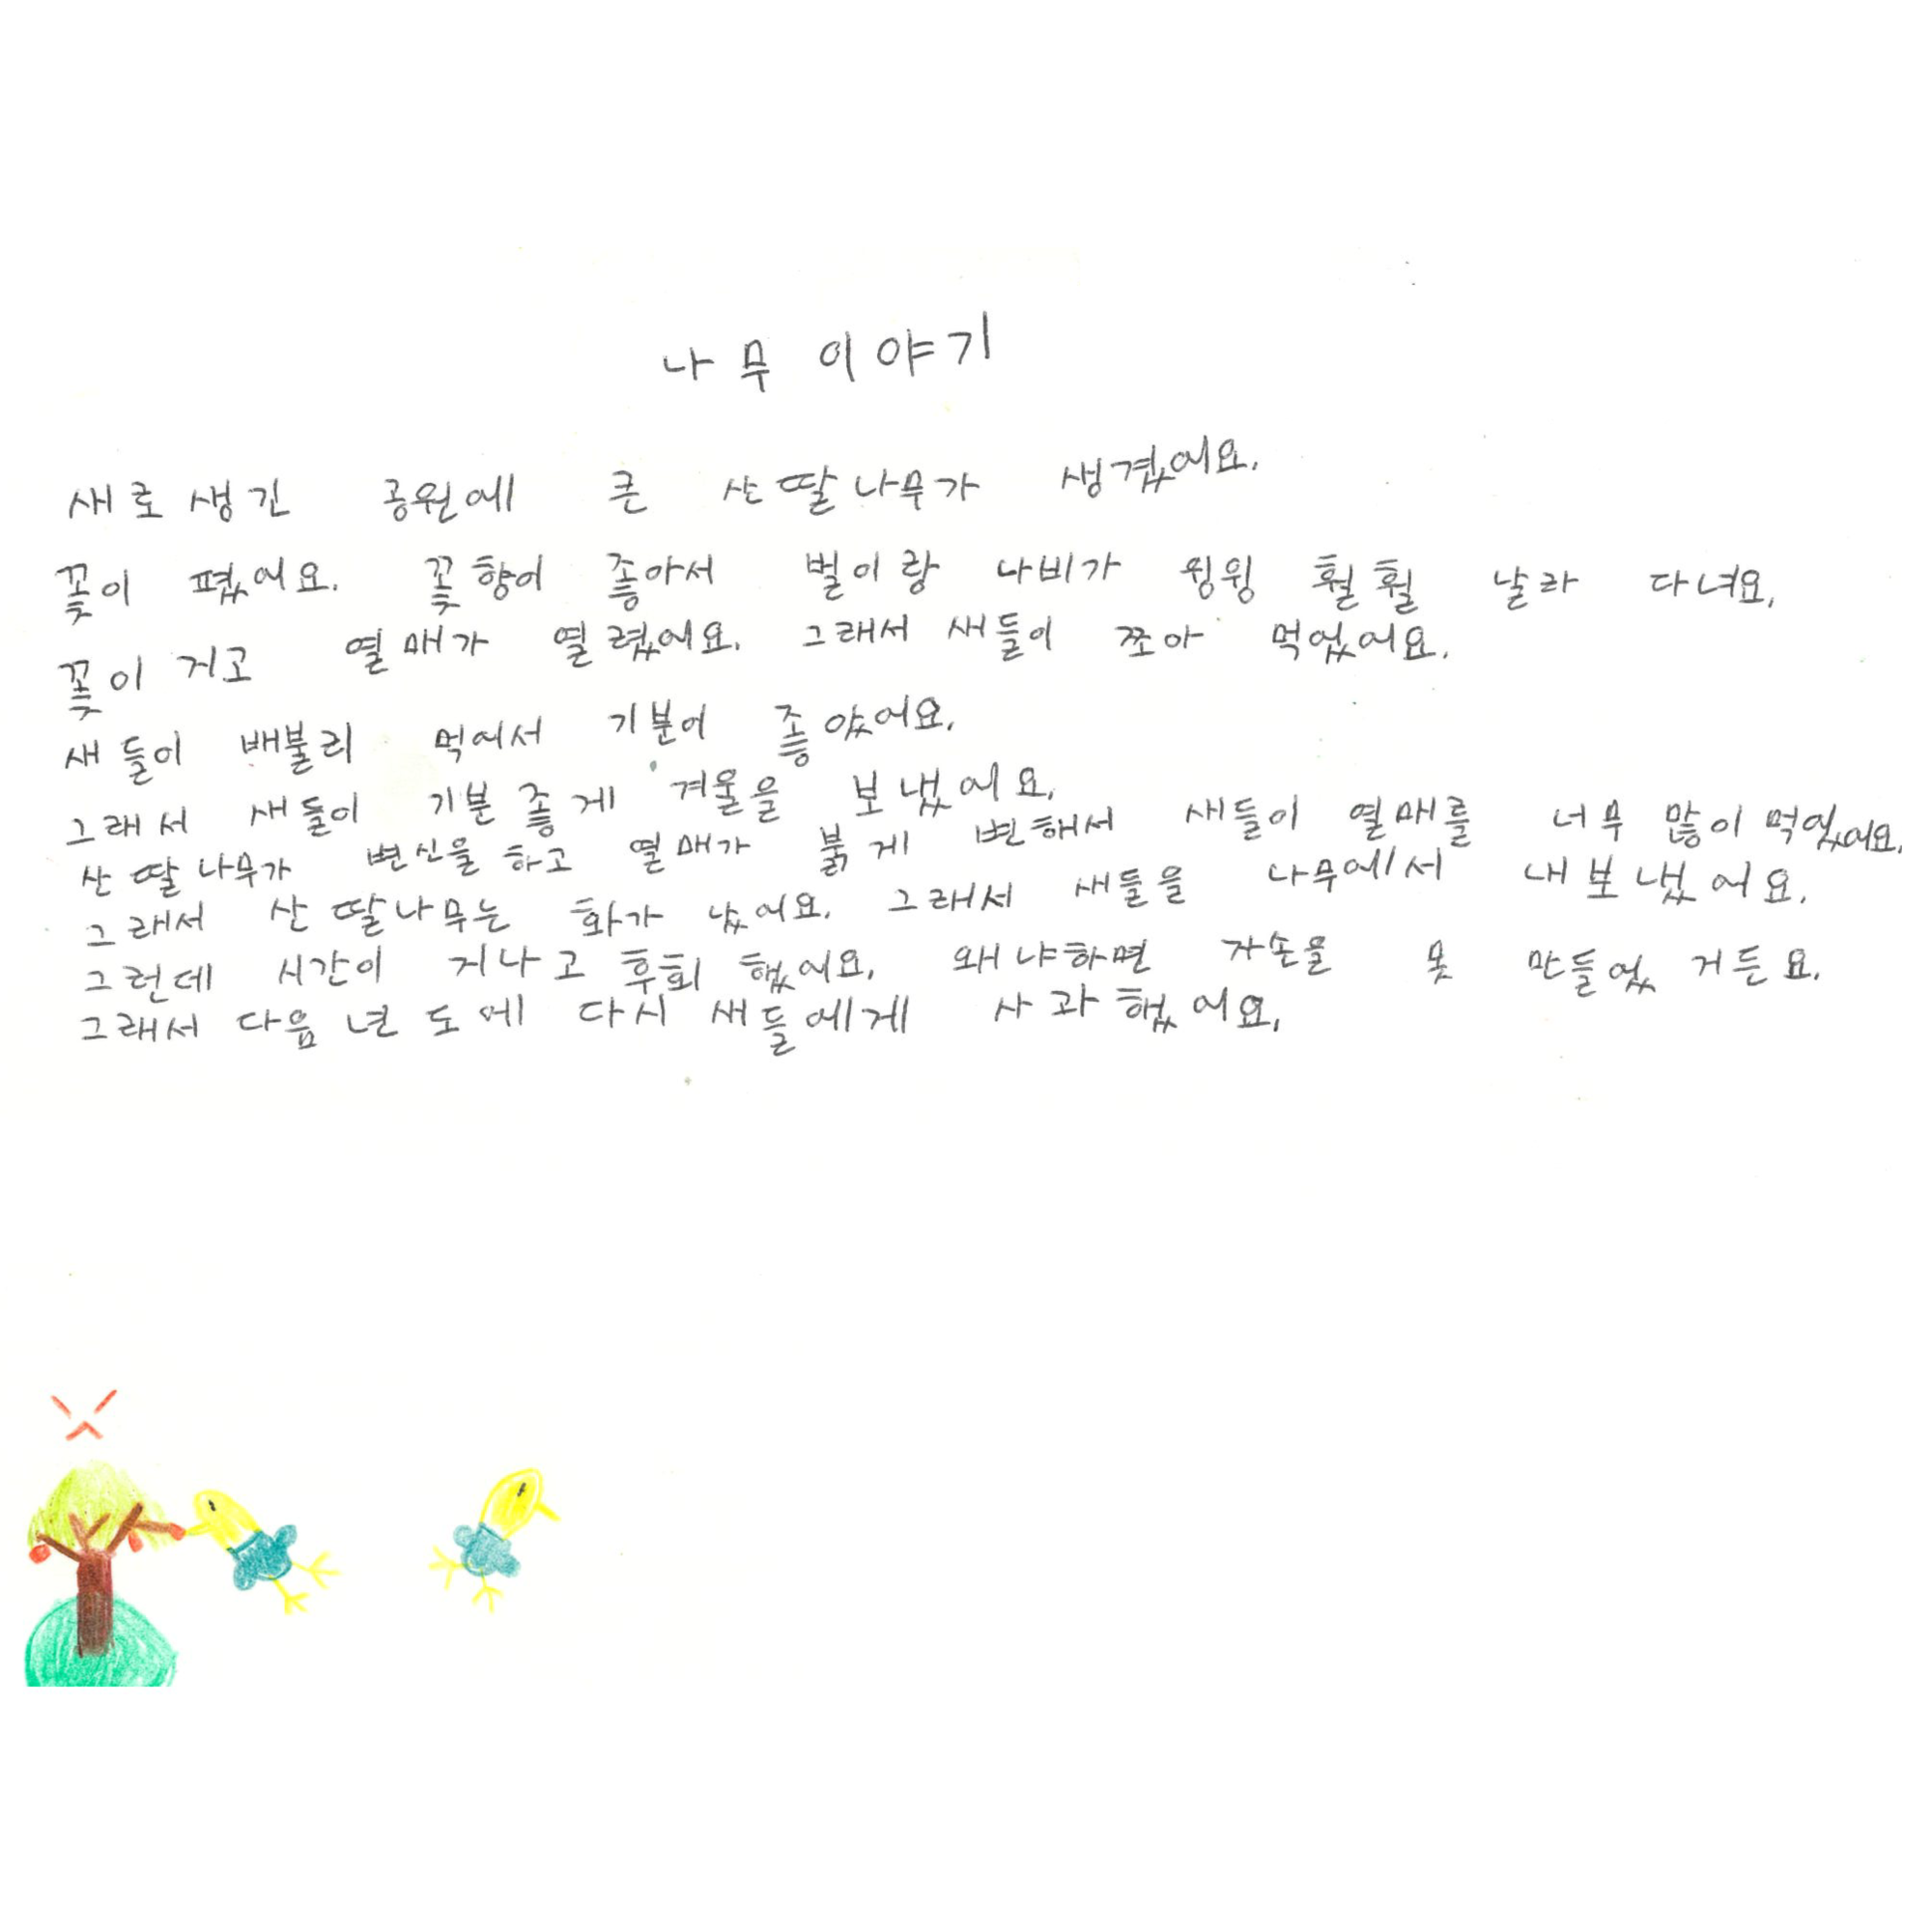 나무 이야기
새로생긴 공원에 큰 산딸나무가 생겼어요.
꽃이 폈어요. 꽃향이 좋아서 벌이랑 나비가 윙윙 훨훨 날라 다녀요.
꽃이 지고 열매가 열렸어요. 그래서 새들이 쪼아 먹었어요.
새들이 배불리 먹어서 기분이 좋았어요.
그래서 새들이 기분좋게 겨울을 보냈어요.
산딸나무가 변신을하고 열매가 붉게 변해서 새들이 열매를 너무 많이먹었어요.
그래서 산딸나무는 화가 났어요. 그래서 새들을 나무에서 내보냈어요.
그런데 시간이 지나고 후회했어요. 왜냐하면 자손을 못 만들었거든요.
그래서 다음년도에 다시 새들에게 사과했어요.